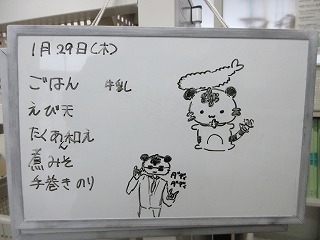 1月29日(木)
ごはん 牛乳
えび天
たくあん和え
煮みそ
手巻きのり